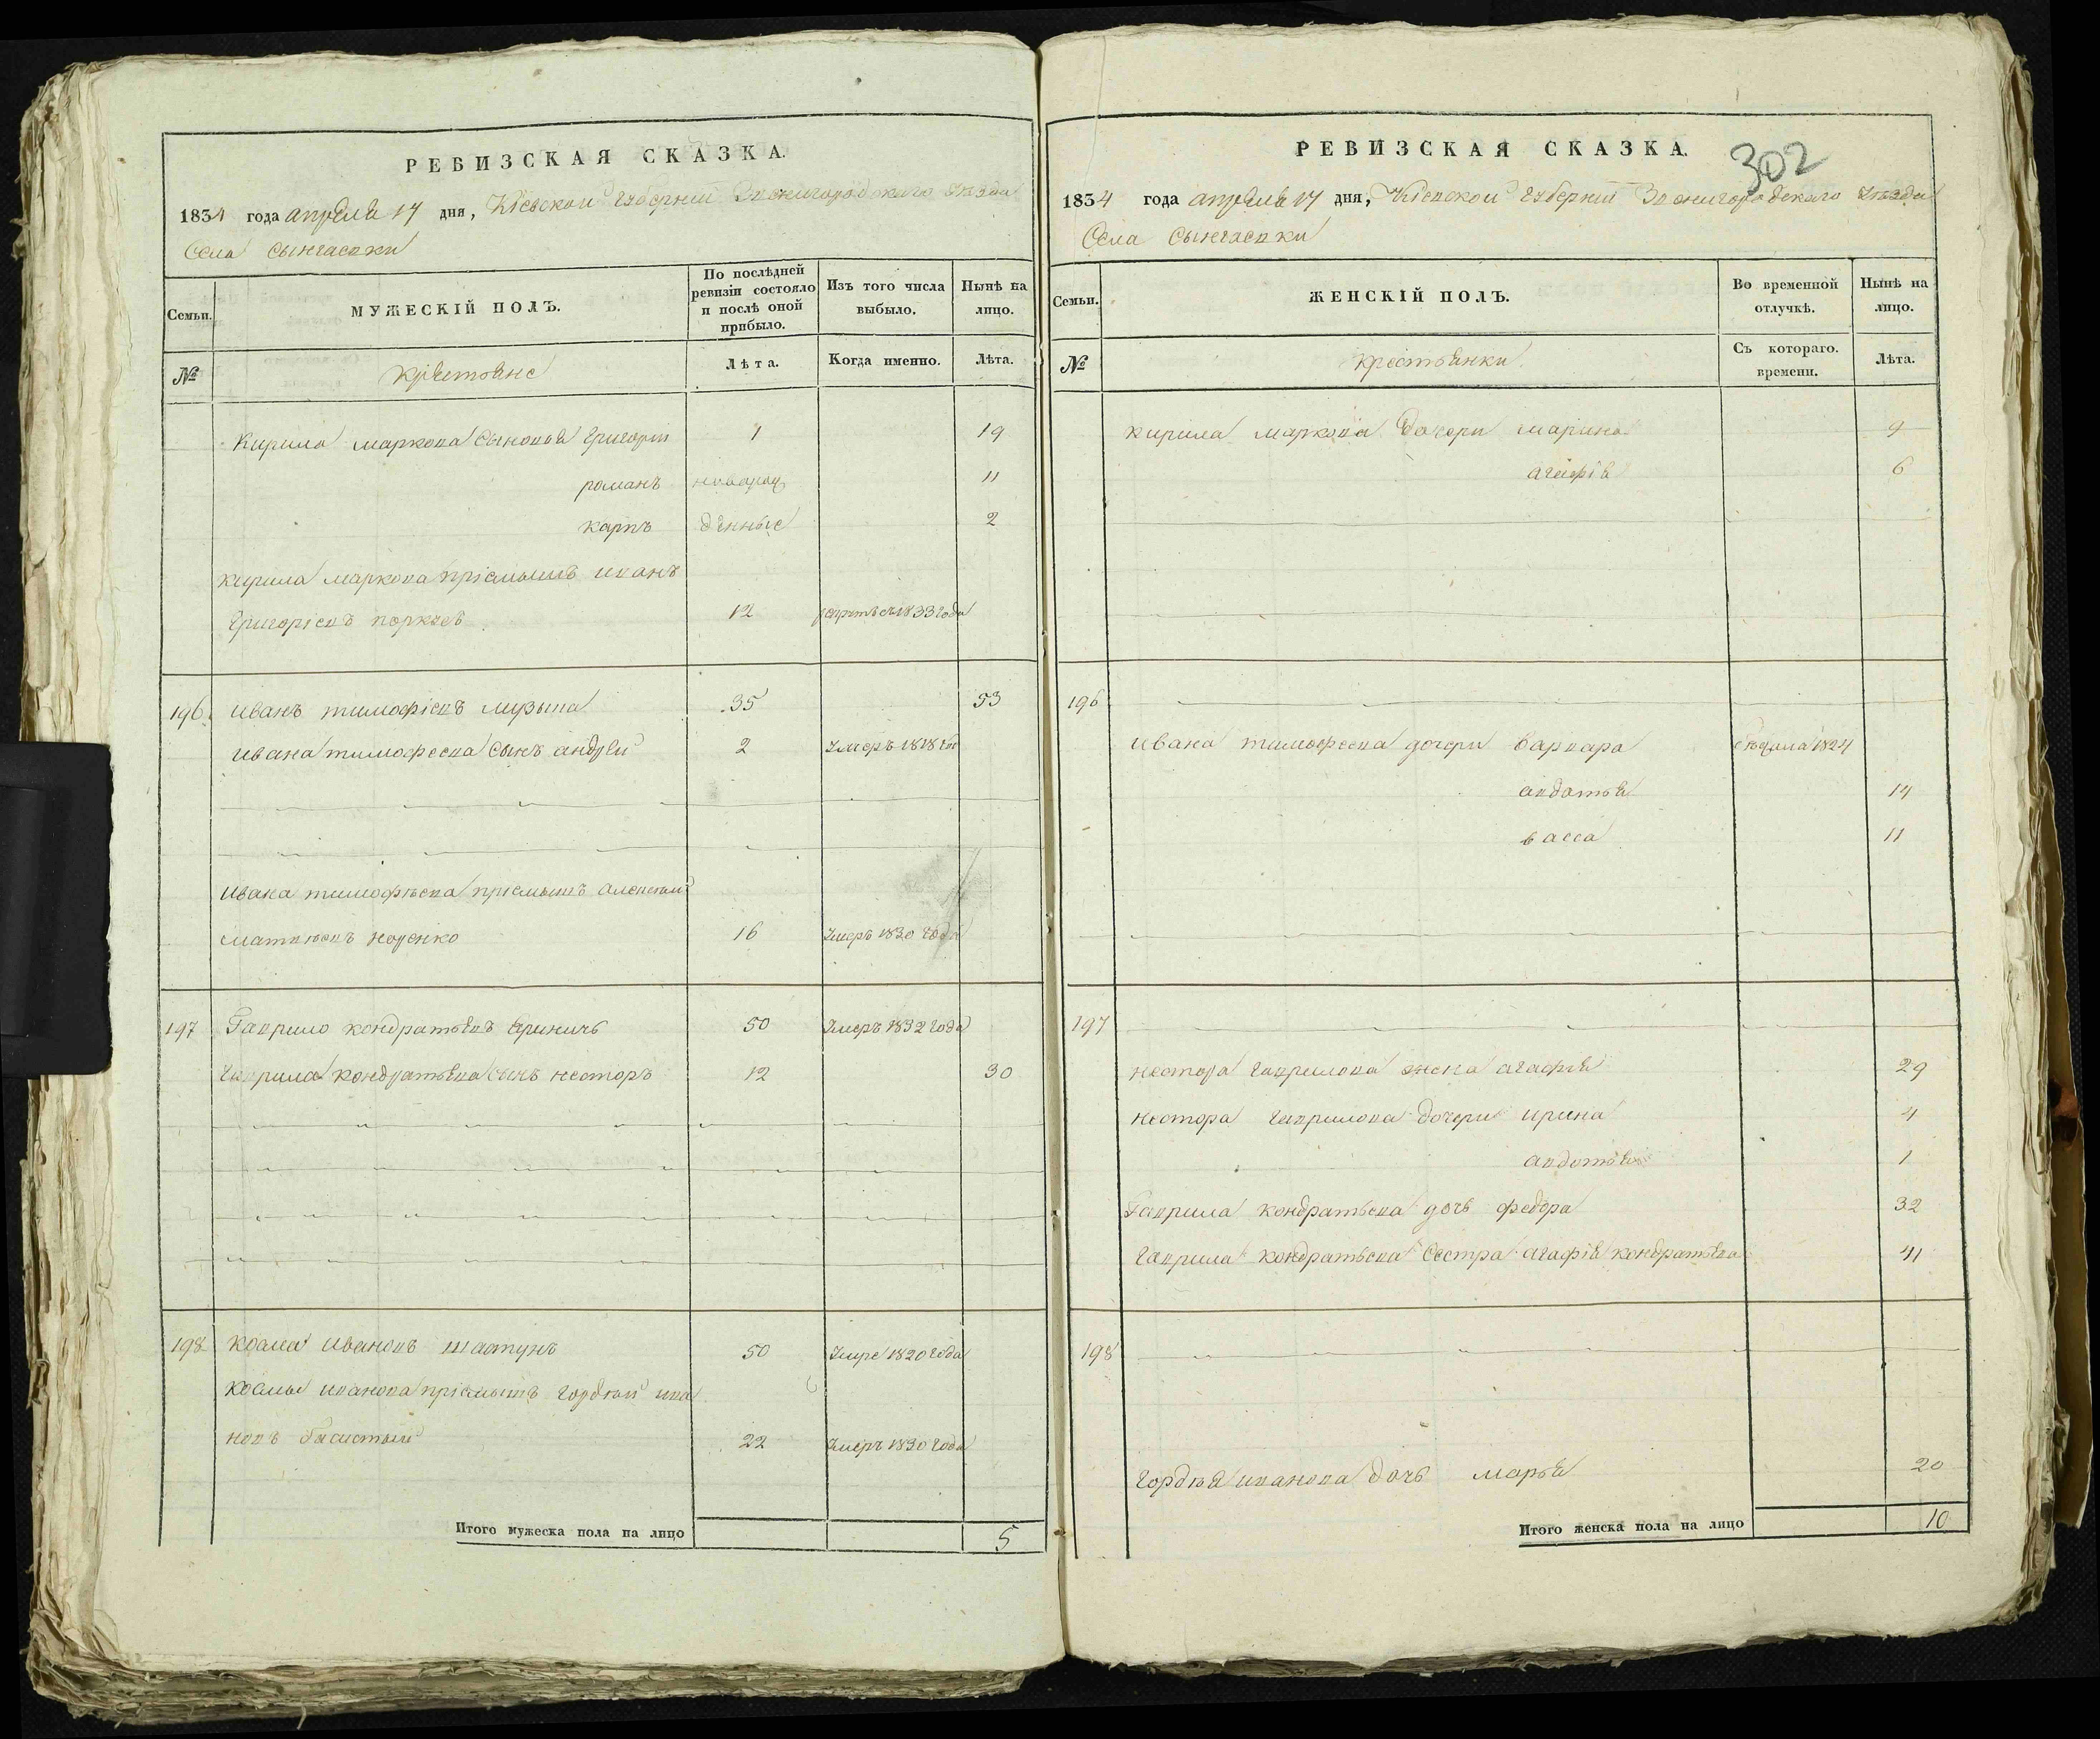 РЕВИЗСКАЯ СКАЗКА.
1834 года апреля 17 дня, Кіевской губерніи Звенигородскаго уѣзда
Села
Семьи.
МУЖЕСКІЙ ПОЛЪ.
По послѣдней ревизіи состояло и послѣ оной прибыло.
Изъ того числа выбыло.
Нынѣ на лицо.
№
Крестьяне
Лѣта.
Когда именно.
Лѣта.
Кирила Маркова сыновья григорій 1 19
романъ новорож 11
карпъ денные 2
кирила маркова пріемышъ иванъ
Григоріевъ 12 1833 года
196 иванъ тимофіевъ музыка 35 53
ивана тимофеева сынъ андрей 2 умеръ 1818
ивана тимофѣева пріемышъ алексѣй
матвѣевъ 16 умеръ 1830 года
197 Гаврило кондратьевъ 50 умеръ 1832 года
гаврила кондратьева сынъ несторъ 12 30
198 козма ивановъ шастунъ 50 умре 1820 года
козмы иванова пріемышъ гордѣй ива
новъ 22 умеръ 1830 года
Итого мужеска пола на лицо 5
РЕВИЗСКАЯ СКАЗКА.
302
1834 года апреля 17 дня, Кіевской губерніи Звенигородскаго уѣзда
Села
Семьи.
ЖЕНСКІЙ ПОЛЪ.
Во временной отлучкѣ.
Нынѣ на лицо.
№
крестьянки
Съ котораго. времени.
Лѣта.
кирила маркова дочери марина 9
агафія 6
196
ивана тимофеева дочери варвара 1824
авдотья 14
васса 11
197
нестора гаврилова жена агафія 29
нестора гаврилова дочери ирина 4
авдотья 1
Гаврила кондратьева дочь федора 32
гаврила кондратьева сестра агафія кондратьева 41
198
гордѣя иванова дочь марья 20
Итого женска пола на лицо 10